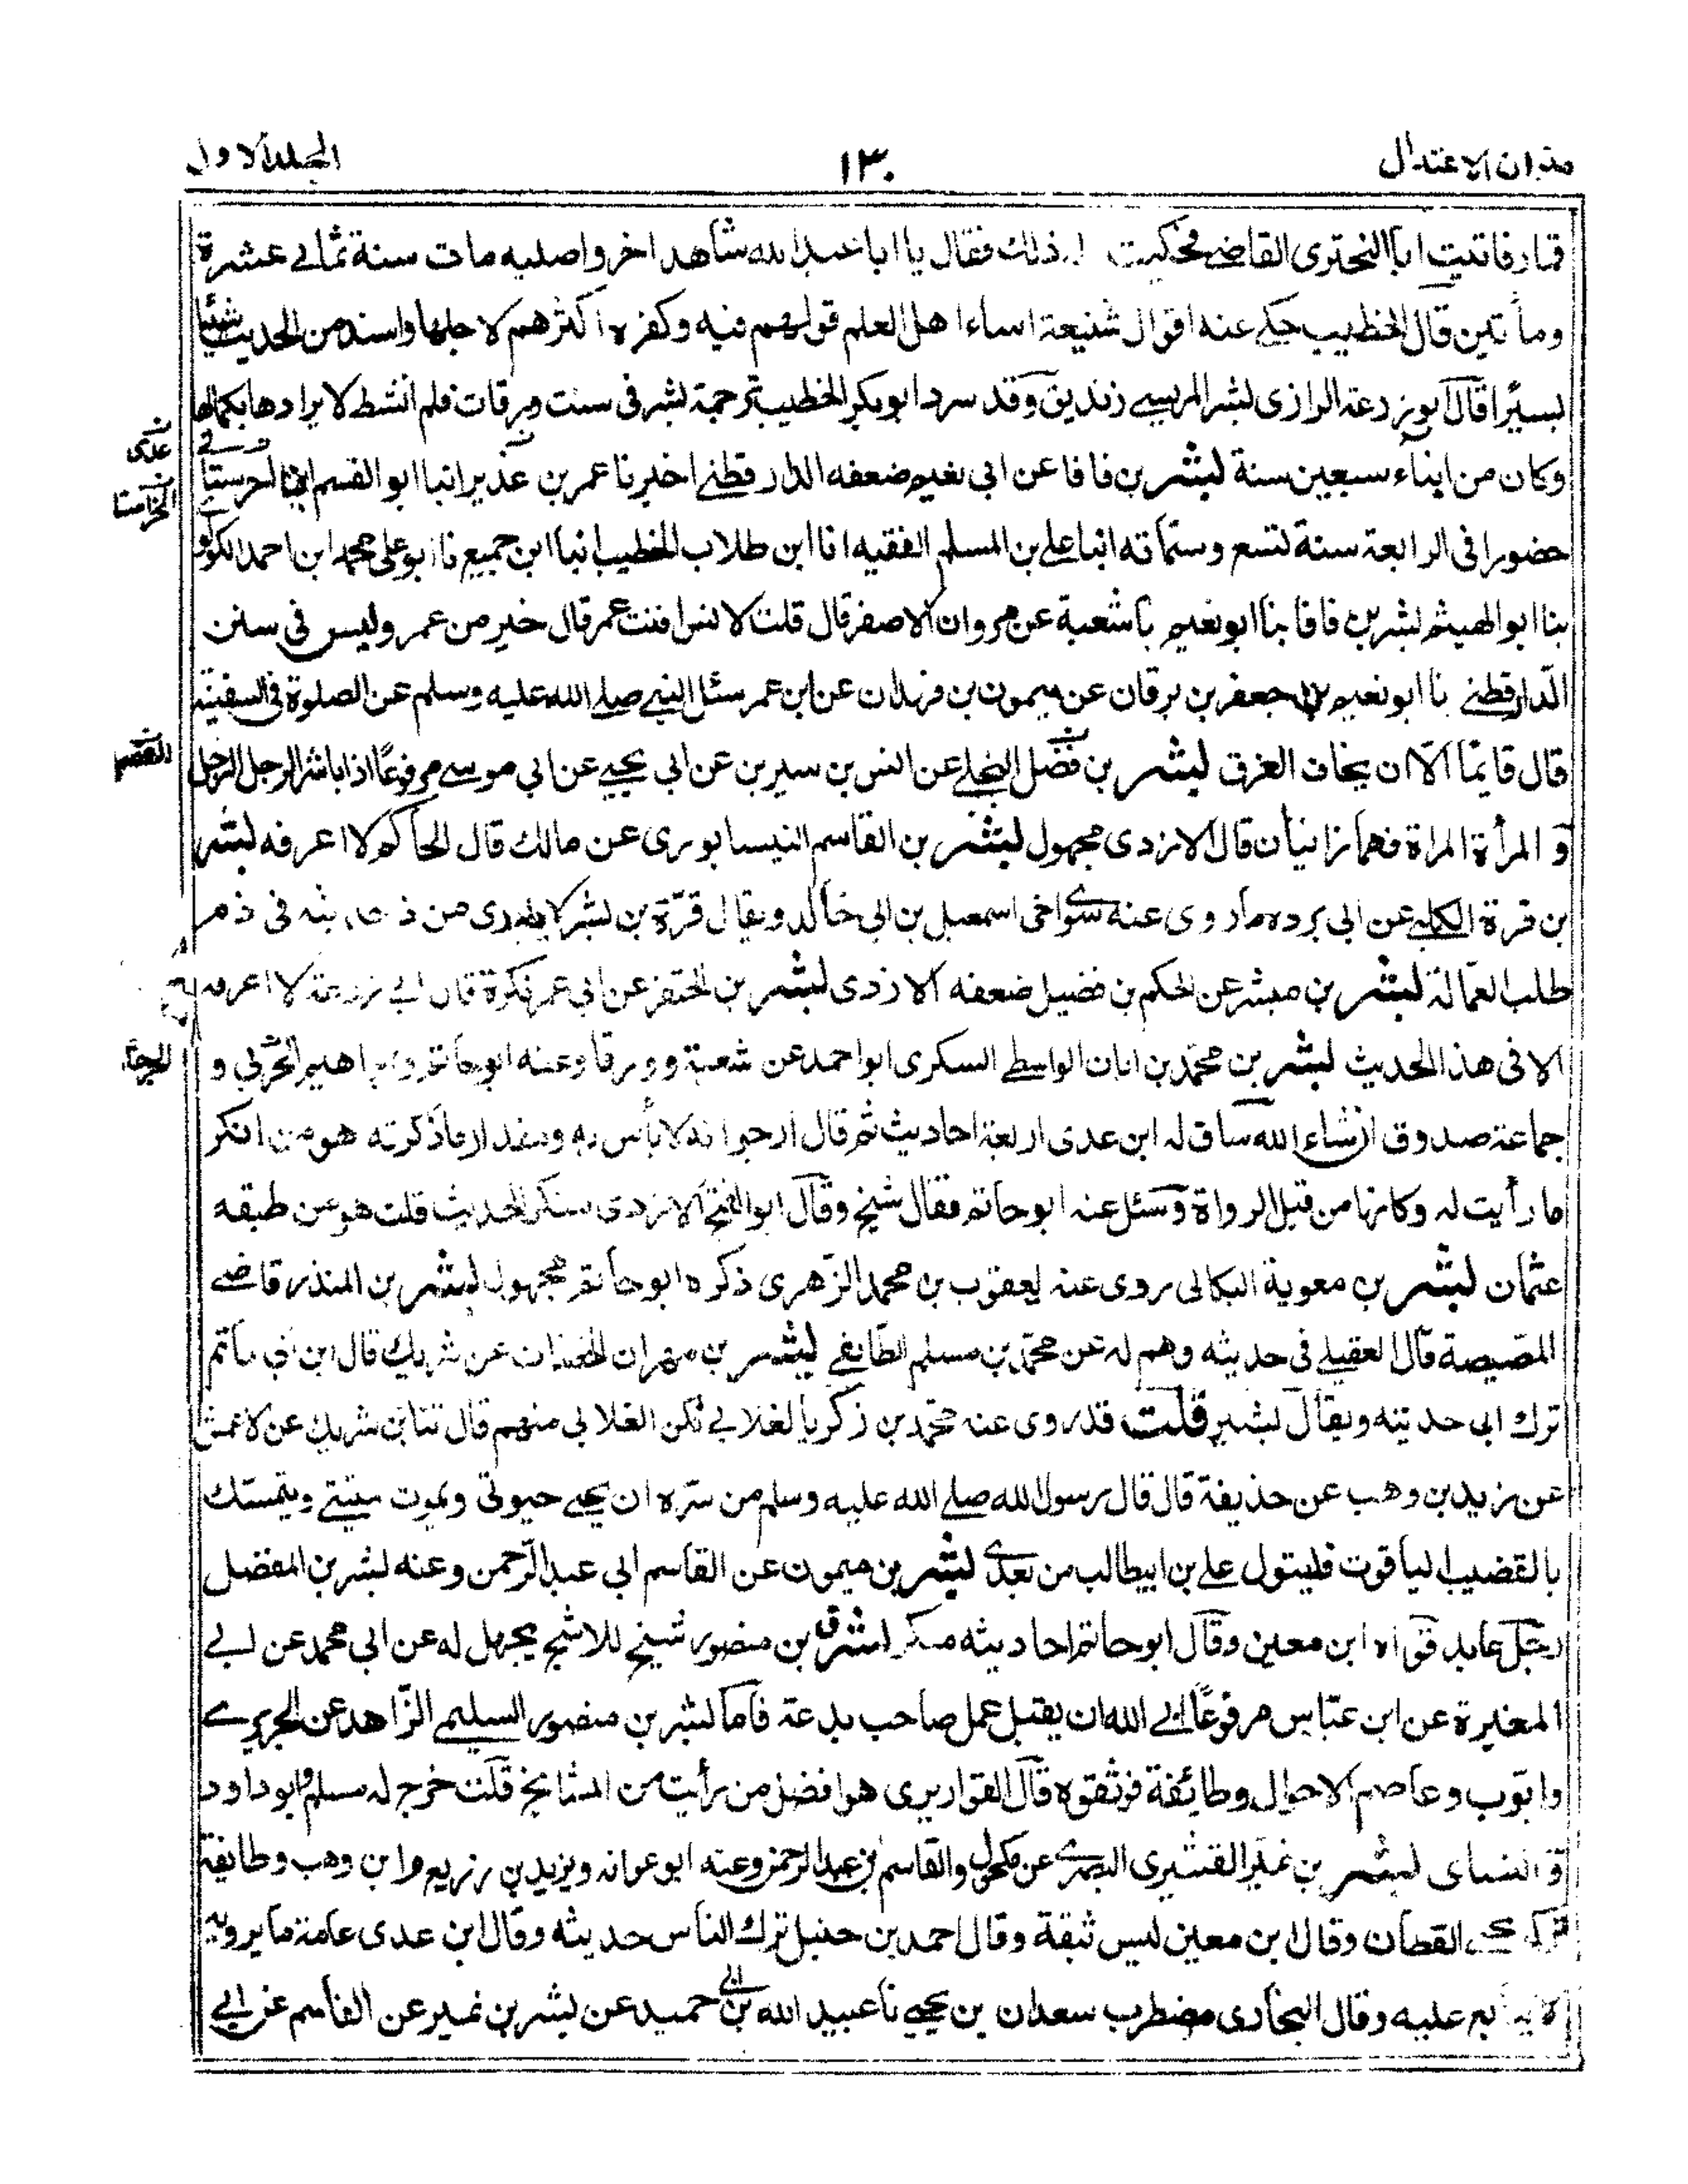 ميزان الاعتدال
١٣٠
المجلد الاول
قمار فاتيت ابا البختري القاضي فحكيت له ذلك فقال يا ابا عبد الله شاهد اخر واصلبه مات سنة ثماني عشرة
ومأتين قال الخطيب حكي عنه اقوال شنيعة اساء اهل العلم قولهم فيه وكفره اكثرهم لاجلها واسند من الحديث شيئا
يسيرا قال ابو زرعة الرازى بشر المريسي زنديق وقد سرد ابو بكر الخطيب ترجمة بشر فى ست ورقات فلم انشط لايرادها بكمالها
عدى
وكان من ابناء سبعين سنة بشر بن فافا عن ابى نعيم ضعفه الدارقطنى اخبرنا عمر بن عذير انبا ابو القسم ابن الحرستانى
الحرستا
حضورا فى الرابعة سنة تسع وستمائه انبا على بن المسلم الفقيه انا ابن طلاب الخطيب انبا ابن جميع نا ابو على محمد ابن احمد
بنا ابو الهيثم بشر بن فافا بنا ابو نعيم نا شعبة عن مروان الاصفر قال قلت لانس اقنت عمر قال خير من عمر وليس فى سنن
الدارقطنى نا ابو نعيم جعفر بن برقان عن ميمون بن مهران عن ابن عمر سئل النبى صلى الله عليه وسلم عن الصلوة فى السفينة
قال قايما الا ان يخاف الغرق بشر بن فضل البجلى عن انس بن سيرين عن ابى يحيى عن ابى موسى مرفوعا اذا باشر الرجل الرجل
و المرأة المراة فهما زانيان قال الازدى مجهول بشر بن القاسم النيسابورى عن مالك قال الحاكم لا اعرفه بشر
بن قرة الكلبى عن ابى برده ما روى عنه سوى اخى اسمعيل بن ابى خالد ويقال قرة بن بشر لا يدرى من ذا حديثه فى ذم
طلب العمالة بشر بن مبشر عن الحكم بن فضيل ضعفه الازدى بشر بن المحتفز عن ابى عمر نكرة قال ابى زرعة لا اعرفه
الا فى هذا الحديث بشر بن محمد بن ابان الواسطى السكرى ابو احمد عن شعبة وورقا وعنه ابو حاتم وابراهيم الحربى و
جماعة صدوق انشاء الله ساق له ابن عدى اربعة احاديث ثم قال ارجو انه لا بأس به ومقدار ما ذكرته هو من انكر
ما رأيت له وكانها من قبل الرواة وسئل عنه ابو حاتم فقال شيخ وقال ابو الفتح الازدى منكر الحديث قلت هو من طبقه
عثمان بشر بن معوية البكالى روى عنه يعقوب بن محمد الزهرى ذكره ابو حاتم مجهول بشر بن المنذر قاضى
المصيصة قال العقيلى فى حديثه وهم له عن محمد بن مسلم الطائفى بشر بن مهران الخصاف عن شريك قال ابن ابى حاتم
ترك ابى حديثه ويقال بشير قلت قد روى عنه محمد بن زكريا الغلابى لكن الغلابى متهم قال ثنا شريك عن الاعمش
عن زيد بن وهب عن حذيفة قال قال رسول الله صلى الله عليه وسلم من سره ان يحيى حيوتى ويموت ميتتى ويتمسك
بالقضيب الياقوت فليتول على بن ابيطالب من بعدى بشر بن ميمون عن القاسم ابى عبد الرحمن وعنه بشر بن المفضل
رجل عابد قواه ابن معين وقال ابو حاتم احاديثه منكرة بشر بن منصور شيخ للاشج يجهل له عن ابى محمد عن ابى
المغيرة عن ابن عباس مرفوعا ابى الله ان يقبل عمل صاحب بدعة فاما بشر بن منصور السليمى الزاهد عن الجريرى
وايوب وعاصم الاحول وطائفة فوثقوه قال القواريرى هو افضل من رأيت من المشايخ قلت خرج له مسلم وابو داود
و النساى بشر بن نمير القشيرى البصرى عن مكحول والقاسم بن عبد الرحمن وعنه ابو عوانه ويزيد بن زريع وابن وهب وطايفة
تركه يحيى القطان وقال ابن معين ليس بثقة وقال احمد بن حنبل ترك الناس حديثه وقال ابن عدى عامة ما يرويه
لا يتابع عليه وقال البخارى مضطرب سعدان بن يحيى نا عبيد الله بن ابى حميد عن بشر بن نمير عن القاسم عن ابى